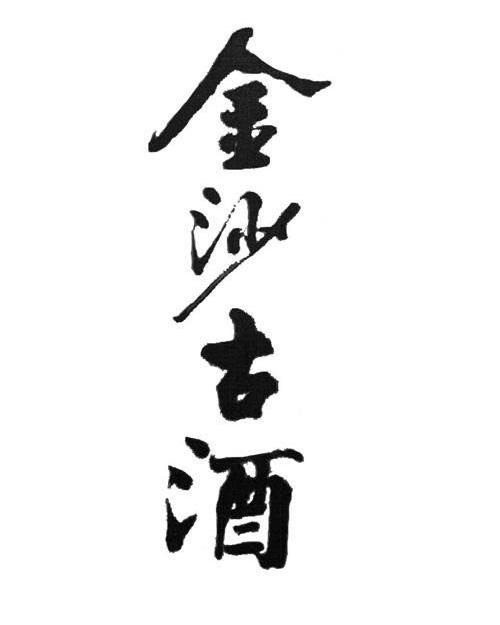 金沙古酒